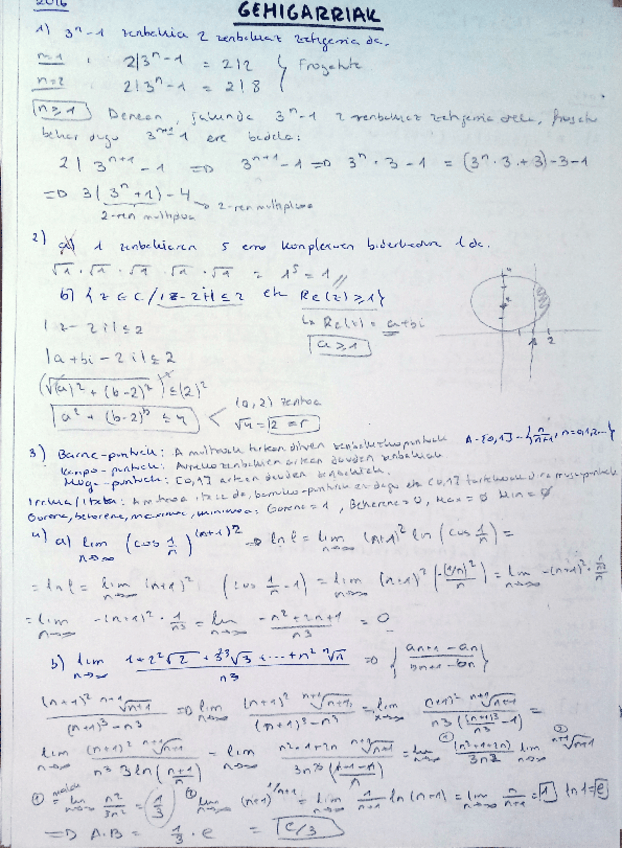 2016
GEHIGARRIAK
1) 3ⁿ-1 zenbakia 2 zenbakiaz zatigarria da.
n=1 : 2|3ⁿ-1 = 2|2 } Frogatuta
n=2 2|3ⁿ-1 = 2|8
n≥1 Denean, jakinda 3ⁿ-1 2 zenbakiaz zatigarria dela, frogatu
behar dugu 3ⁿ⁺¹-1 ere badela:
2| 3ⁿ⁺¹-1 => 3ⁿ⁺¹-1 => 3ⁿ·3-1 = (3ⁿ·3+3)-3-1
=> 3(3ⁿ+1)-4 → 2-ren multiploa
2-ren multiploa
2) a) 1 zenbakiaren 5 erro konplexuen biderkadura 1 da.
√1·√1·√1·√1·√1 = 1⁵ = 1 //
b) {z ∈ C / |z-2i| ≤ 2 eta Re(z) ≥ 1}
↳ Re(z) = a+bi
a≥1
|z-2i| ≤ 2
|a+bi-2i| ≤ 2
(√(a)²+(b-2)²)² ≤ (2)²
a²+(b-2)² ≤ 4 < (0,2) zentroa
√4 = 2 = r
3) Barne-puntuak: A multzoak tartean dituen A=[0,1]-{n/(n+1), n=0,1,2...}
Kanpo-puntuak: zenbakien artean dauden zenbakiak
Muga-puntuak: [0,1] artean dauden zenbakiak.
Irekia/Itxia: A multzoa itxia da, barruko puntuak
Gorena, beherena, maximoa, minimoa: Gorena=1, Beherena=0, Max=∅ Min=∅
4) a) lim n→∞ (cos 1/n)^(n+1)² => ln l = lim n→∞ (n+1)² ln(cos 1/n) =
= ln l = lim n→∞ (n+1)² (cos 1/n - 1) = lim n→∞ (n+1)² (-(1/n)²/n) = lim n→∞ -(n+1)²·
= lim n→∞ -(n+1)²·1/n³ = lim n→∞ -n²+2n+1/n³ = 0
b) lim n→∞ 1+2²√2+3²³√3+...+n²ⁿ√n / n³ => {an+1-an / bn+1-bn}
(n+1)² ⁿ⁺¹√n+1 / (n+1)³-n³ => lim n→∞ (n+1)² ⁿ⁺¹√n+1 / (n+1)³-n³ = lim n→∞ (n+1)² ⁿ⁺¹√n+1 / n³((n+1)³/n³ -1) =
lim n→∞ (n+1)² ⁿ⁺¹√n+1 / n³ 3ln(n+1/n) = lim n→∞ n²+1+2n ⁿ⁺¹√n+1 / 3n³(n+1-1/n) = lim n→∞ ① (n²+1+2n)/3n² lim n→∞ ② ⁿ⁺¹√n+1
① = lim n→∞ n²/3n² = 1/3 ② lim n→∞ (n+1)^1/n+1 = lim n→∞ 1/n+1 ln(n+1) = lim n→∞ n/n+1 = 1 ln 1 = e
=> A.B = 1/3 · e = e/3